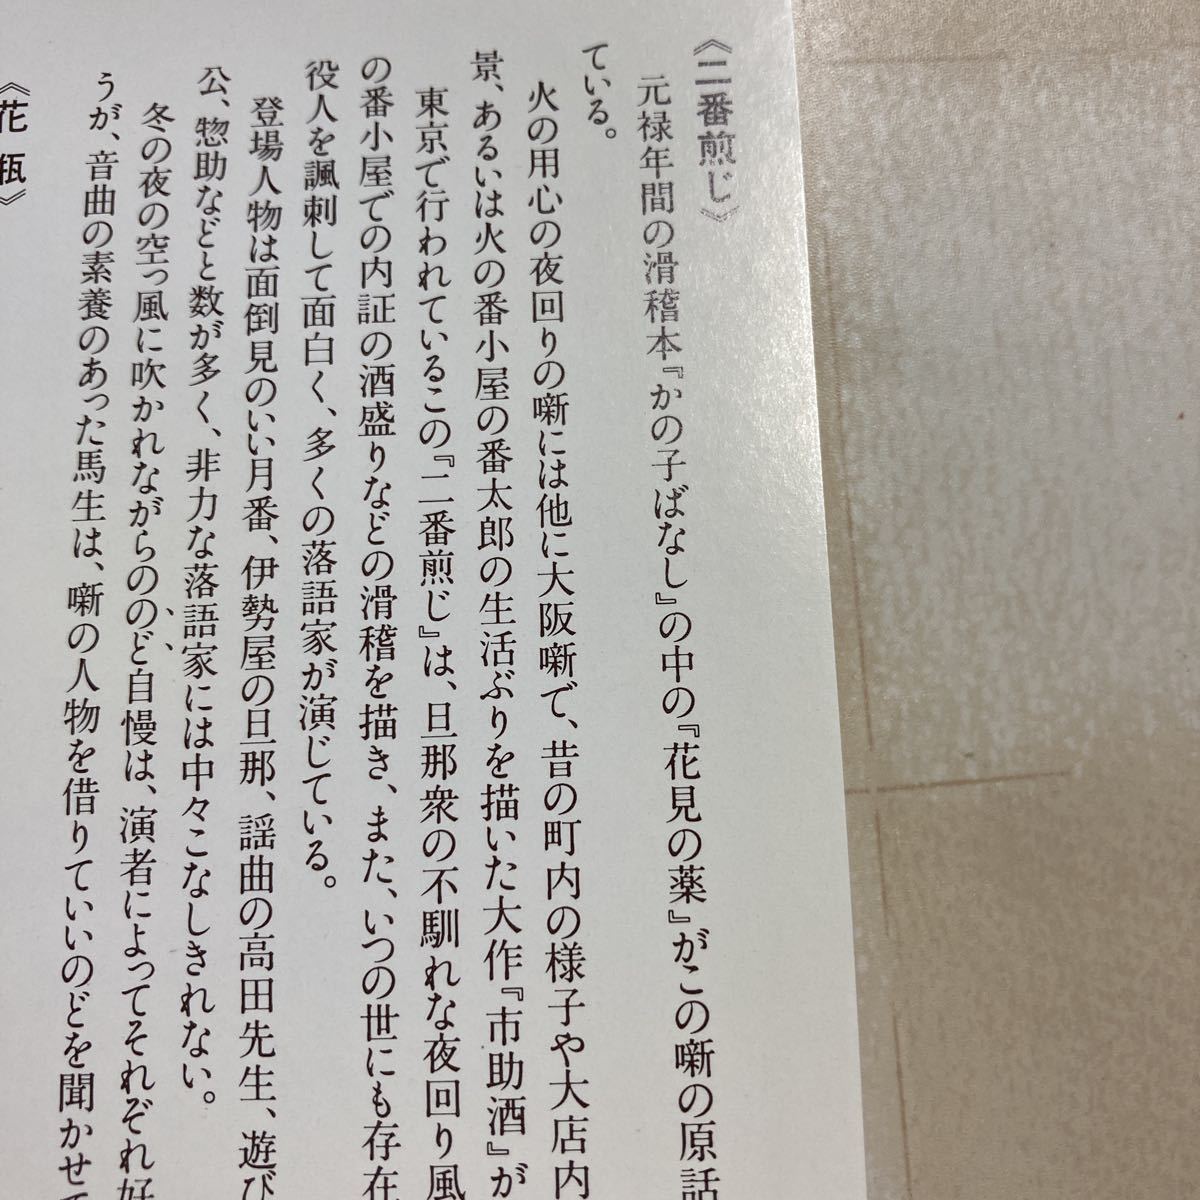 《二番煎じ》
元禄年間の滑稽本『かの子ばなし』の中の『花見の薬』がこの噺の原話
ている。
火の用心の夜回りの噺には他に大阪噺で、昔の町内の様子や大店内
景、あるいは火の番小屋の番太郎の生活ぶりを描いた大作『市助酒』が
東京で行われているこの『二番煎じ』は、旦那衆の不馴れな夜回り風
の番小屋での内証の酒盛りなどの滑稽を描き、また、いつの世にも存在
役人を諷刺して面白く、多くの落語家が演じている。
登場人物は面倒見のいい月番、伊勢屋の旦那、謡曲の高田先生、遊び
公、惣助などと数が多く、非力な落語家には中々こなしきれない。
冬の夜の空っ風に吹かれながらののど自慢は、演者によってそれぞれ好
うが、音曲の素養のあった馬生は、噺の人物を借りていいのどを聞かせて
《花瓶》